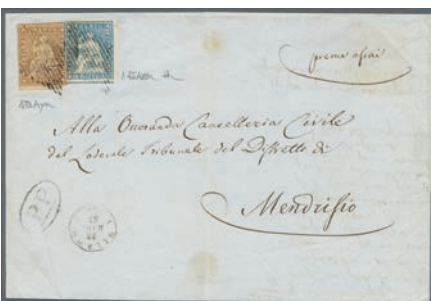 preme assai
Alla Onoranda Cancelleria Civile
del Lodevole Tribunale del Distretto di
Mendrisio
PP